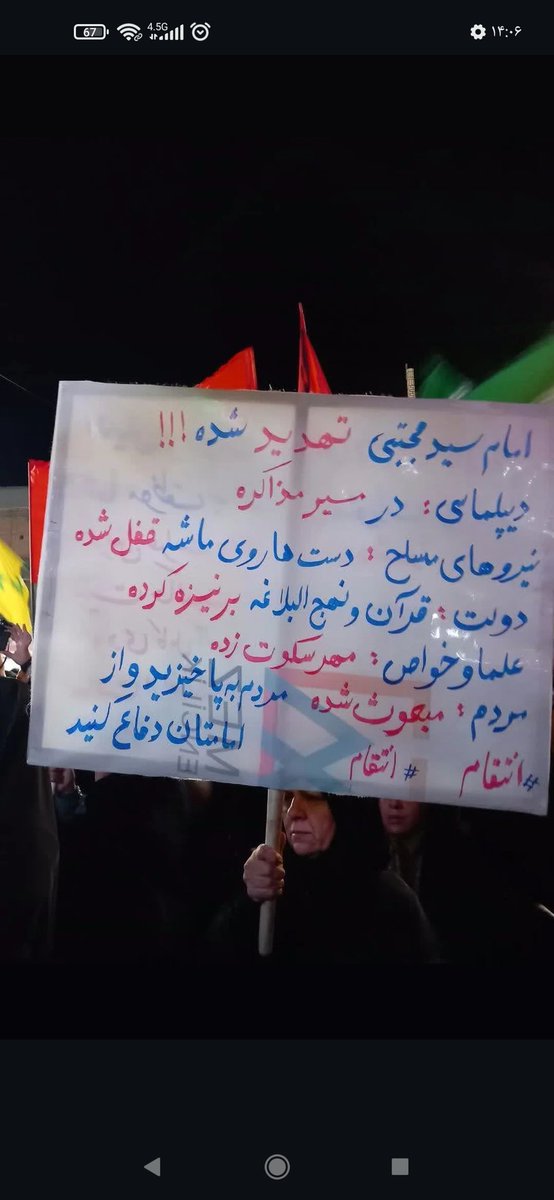 67
4.5G
۱۴:۰۶
امام سید مجتبی تهدید شده!!!
دیپلماسی: در مسیر مذاکره
نیروهای مسلح: دست ها روی ماشه قفل شده
دولت: قرآن و نهج البلاغه بر نیزه کرده
علما و خواص: مهر سکوت زده
مردم: مبعوث شده
مردم به پا خیزید و از
امامتان دفاع کنید
#انتقام #انتقام